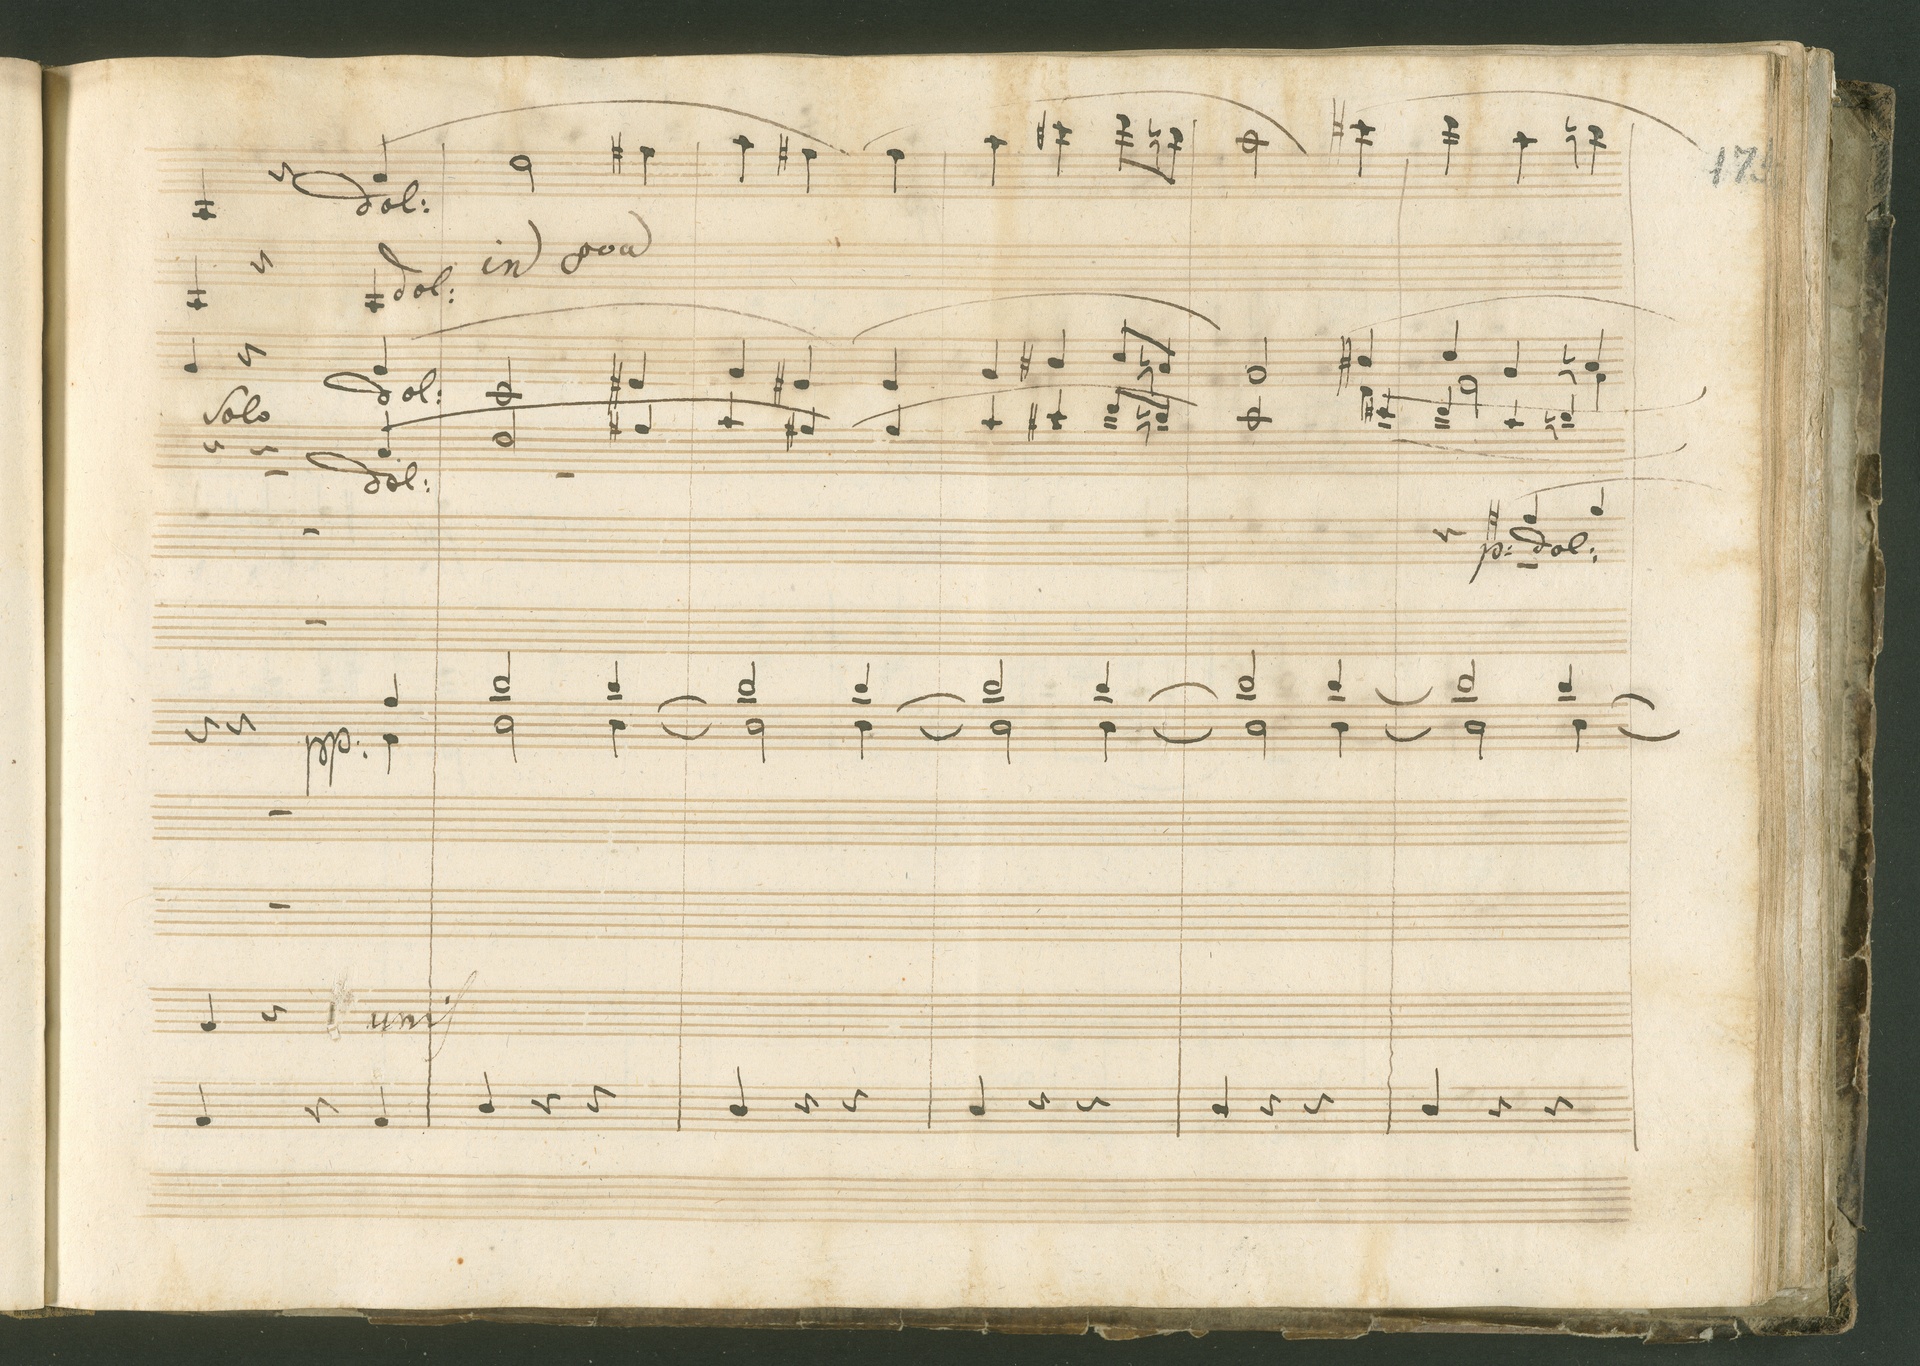 dol:
dol:
in 8va
dol:
Solo
dol:
p: dol:
pp:
unis